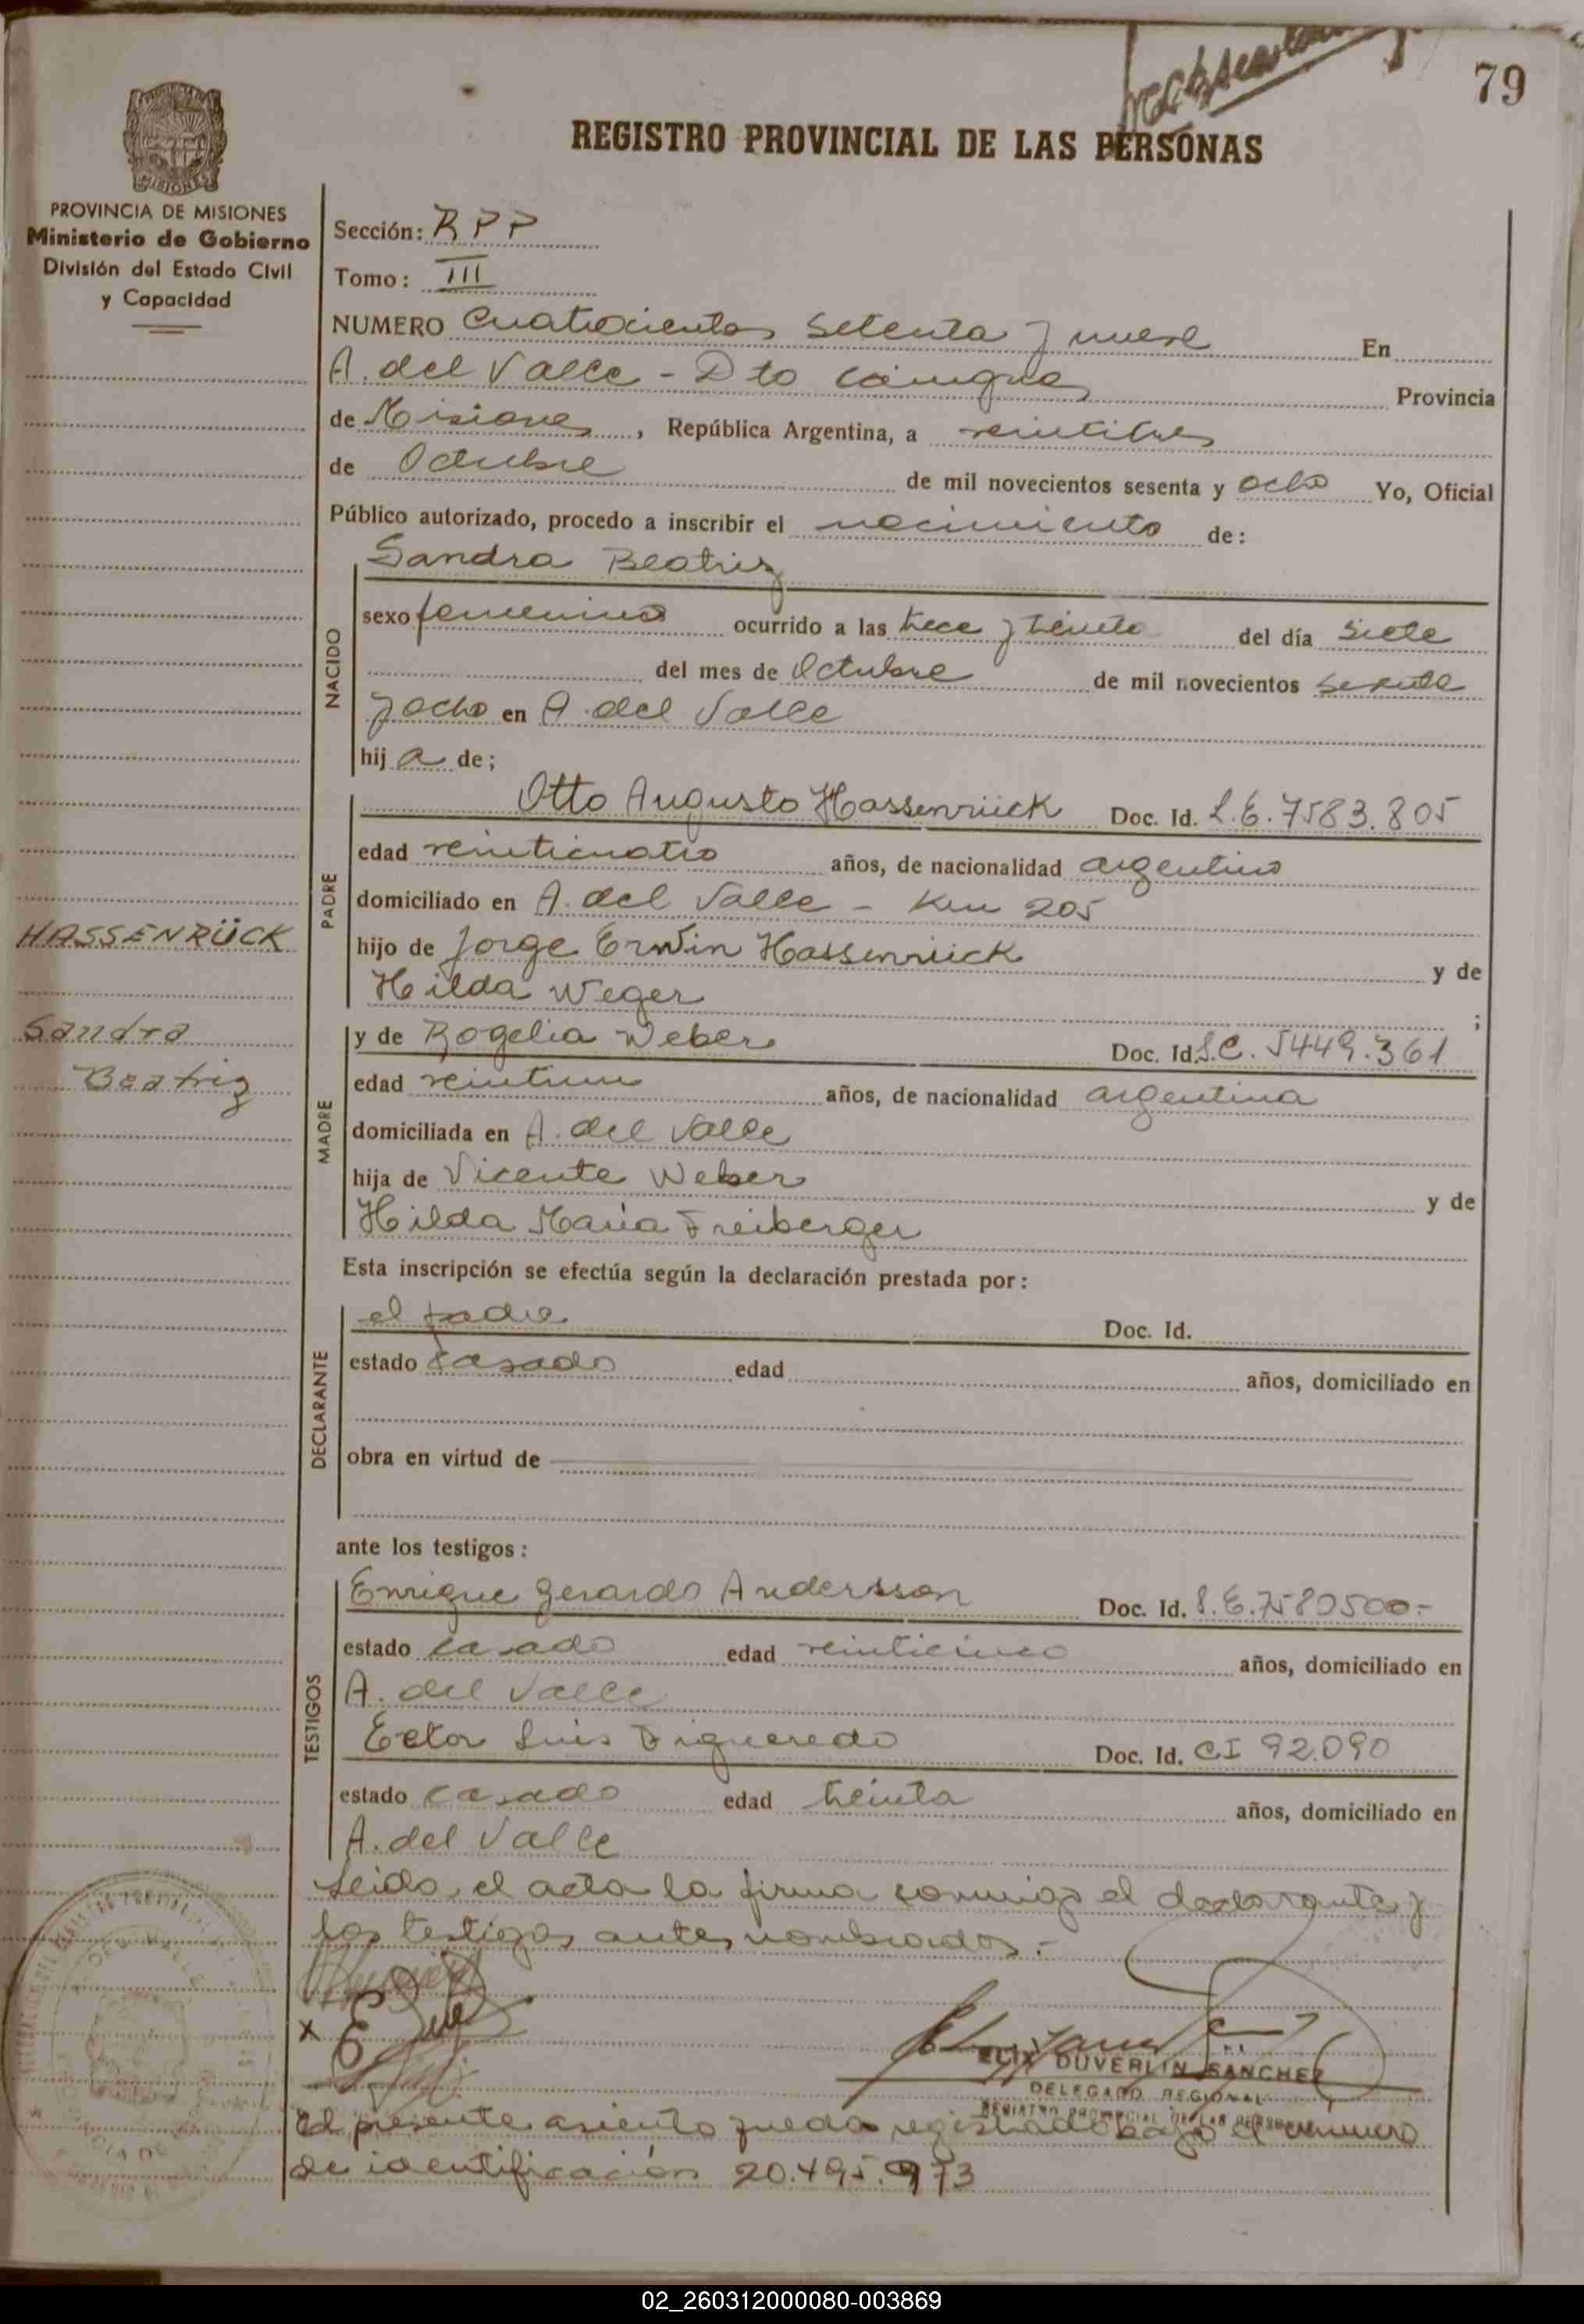 79
REGISTRO PROVINCIAL DE LAS PERSONAS
PROVINCIA DE MISIONES
Ministerio de Gobierno
División del Estado Civil
y Capacidad
HASSENRÜCK
Sandra
Beatriz
Sección: RPP
Tomo: III
NUMERO Cuatrocientos setenta y nueve En
A. del Valle - Dto Cainguas Provincia
de Misiones, República Argentina, a veintitres
de Octubre de mil novecientos sesenta y ocho Yo, Oficial
Público autorizado, procedo a inscribir el nacimiento de:
NACIDO
Sandra Beatriz
sexo femenino ocurrido a las trece y treinta del día siete
del mes de Octubre de mil novecientos sesenta
y ocho en A. del Valle
hija de;
PADRE
Otto Augusto Hassenrück Doc. Id. L.E. 7583.805
edad veinticuatro años, de nacionalidad argentino
domiciliado en A. del Valle - Km 205
hijo de Jorge Erwin Hassenrück y de
Hilda Weger ;
MADRE
y de Rogelia Weber Doc. Id. L.C. 5449.361
edad veintiun años, de nacionalidad argentina
domiciliada en A. del Valle
hija de Vicente Weber y de
Hilda Maria Freiberger
Esta inscripción se efectúa según la declaración prestada por:
DECLARANTE
el padre Doc. Id.
estado casado edad años, domiciliado en
obra en virtud de
ante los testigos:
TESTIGOS
Enrique Gerardo Andersson Doc. Id. L.E. 7580500.-
estado casado edad veinticinco años, domiciliado en
A. del Valle
Ector Luis Figueredo Doc. Id. CI 92.090
estado casado edad treinta años, domiciliado en
A. del Valle
Leida el acta la firma conmigo el declarante y
los testigos antes nombrados.-
DUVERLIN SANCHEZ
DELEGADO REGIONAL
REGISTRO PROVINCIAL DE LAS PERSONAS
El presente asiento queda registrado bajo el numero
de identificación 20.495.973
02_260312000080-003869